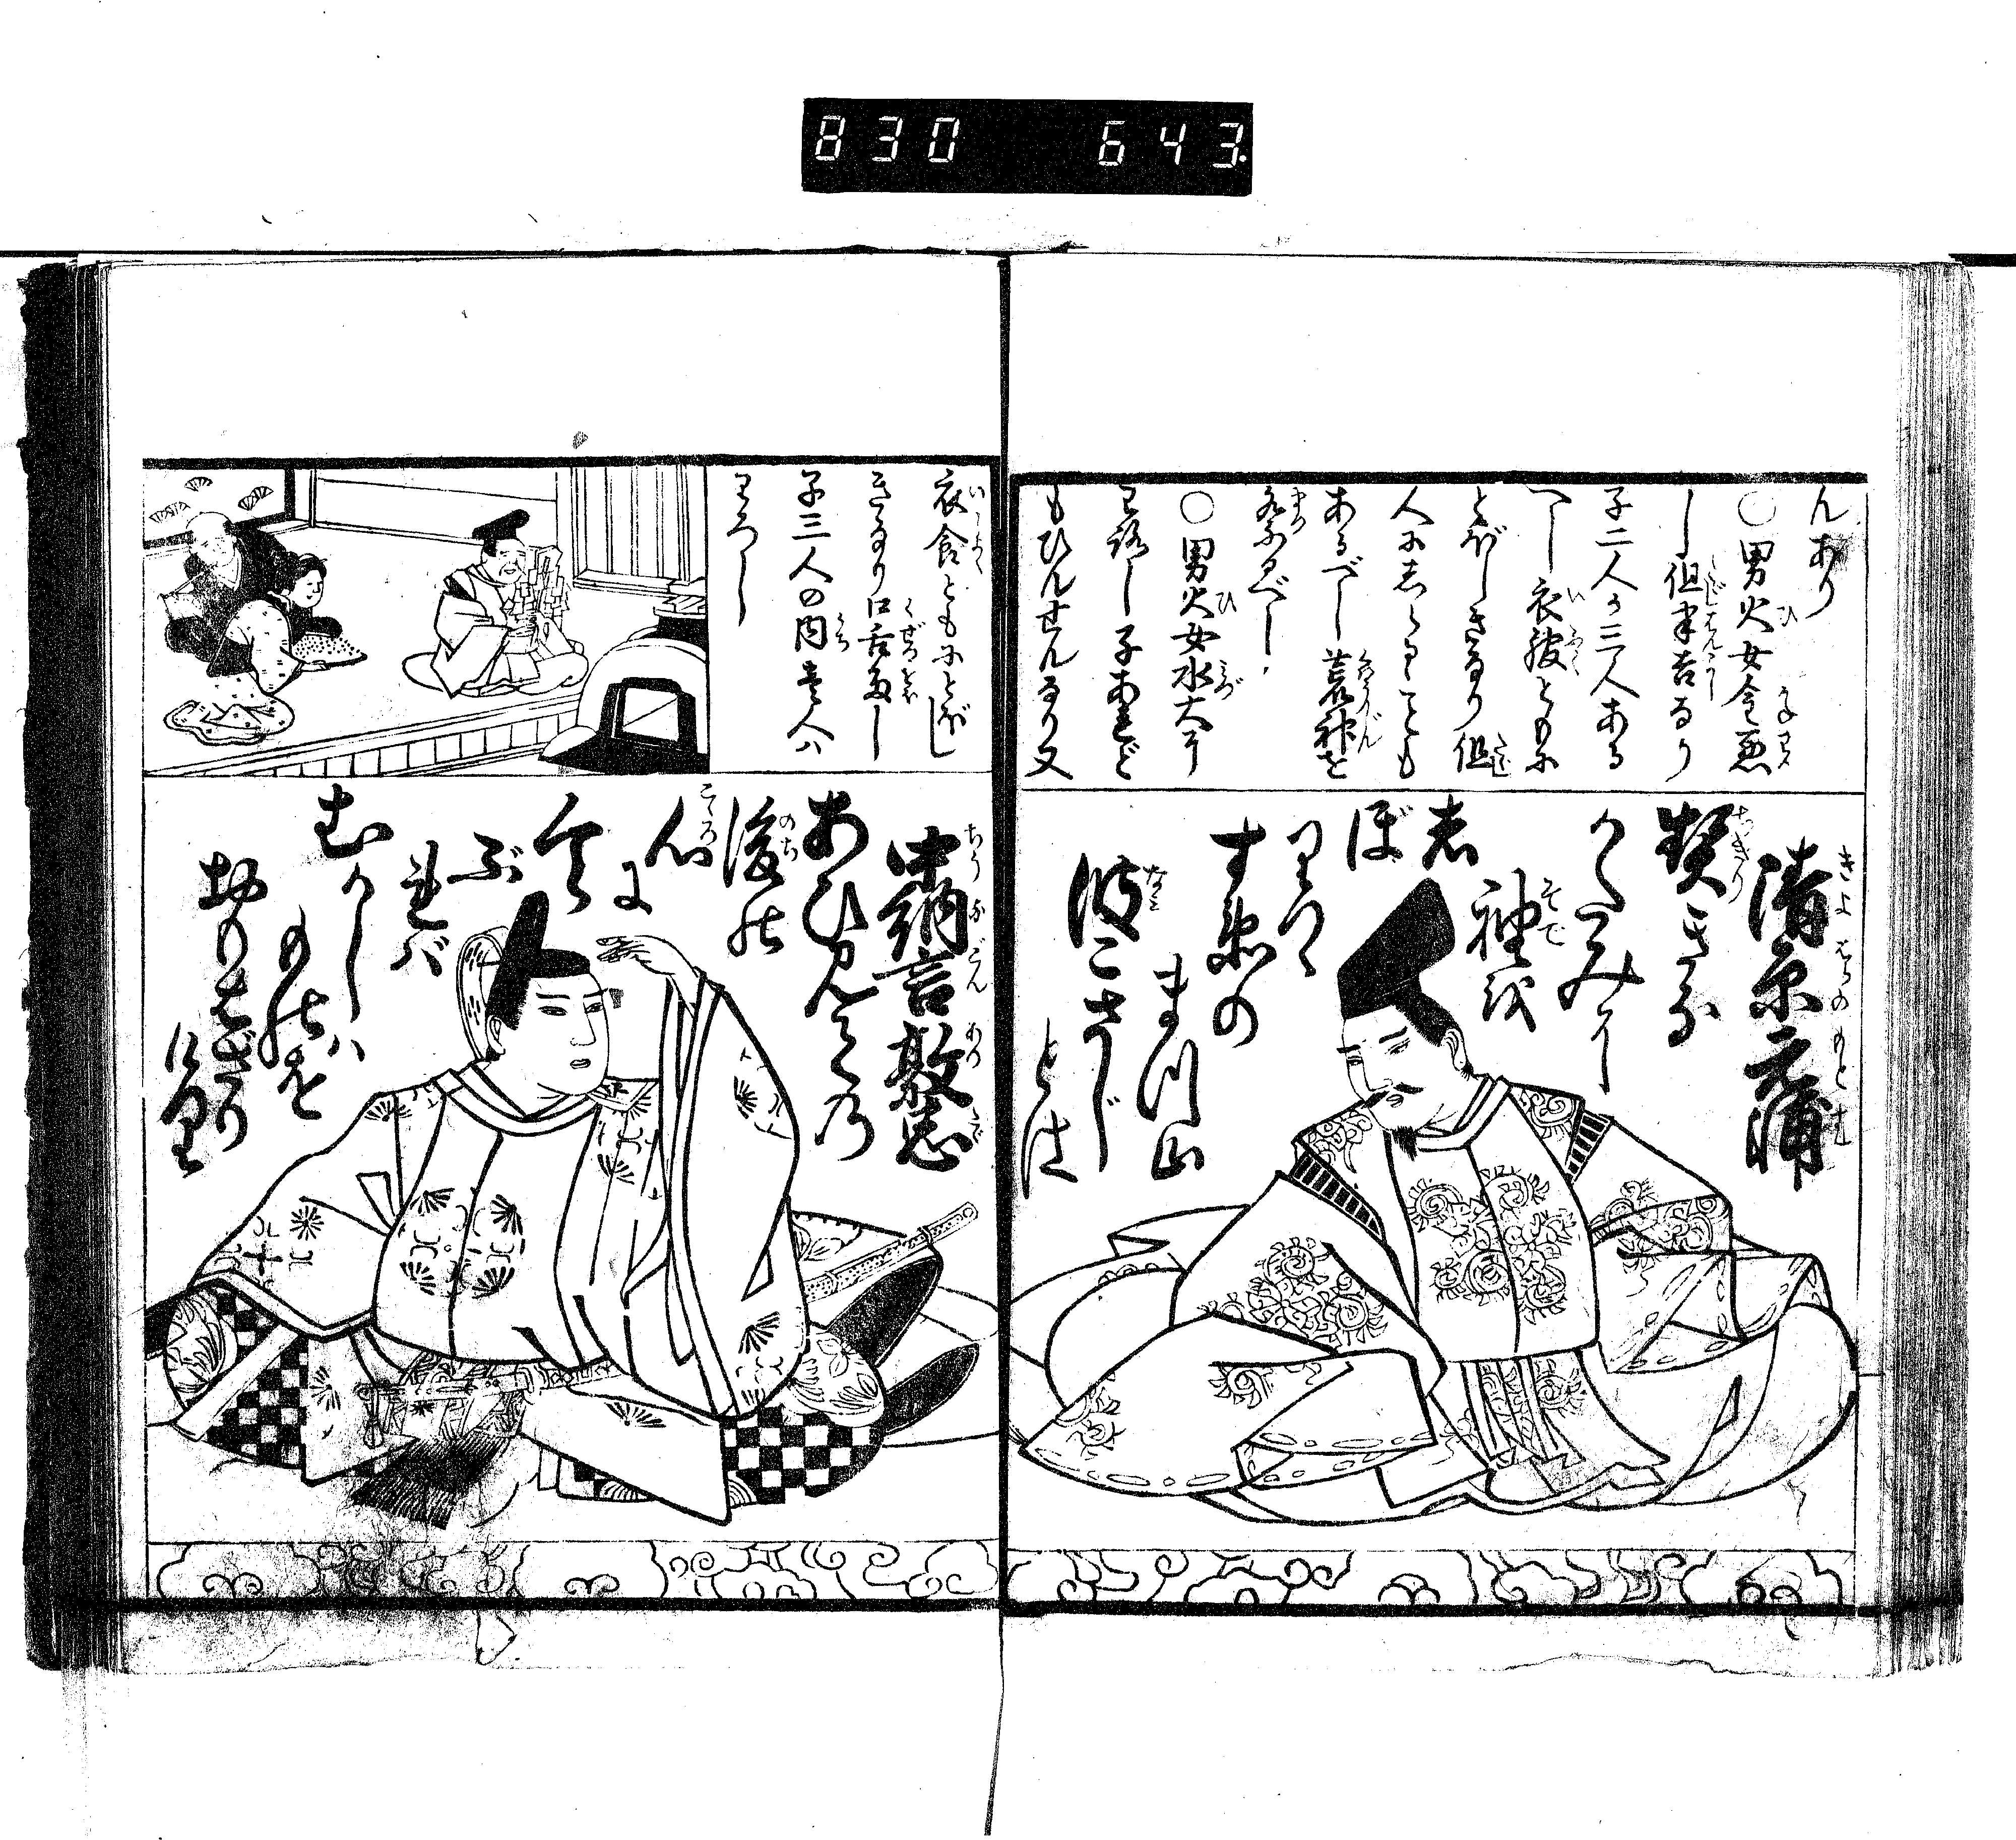 830 643
んあり
〇男火女金悪
し但半吉なり
子二人か三人ある
べし衣服ともに
とぼしきなり但
人にしらるゝことも
あるべし荒神を
祭るべし
〇男火女水大に
わろし子あれど
もひんせんなり又
清原元輔
契きな
かたみに
袖を
しぼ
りつゝ
すゑの
まつ山
波こさじ
とは
衣食ともにとぼし
きなり口舌多し
子三人の内壱人は
わろし
中納言敦忠
あひ見ての
後の
心に
くら
ぶ
れば
むかしは
ものを
おもはざり
けり